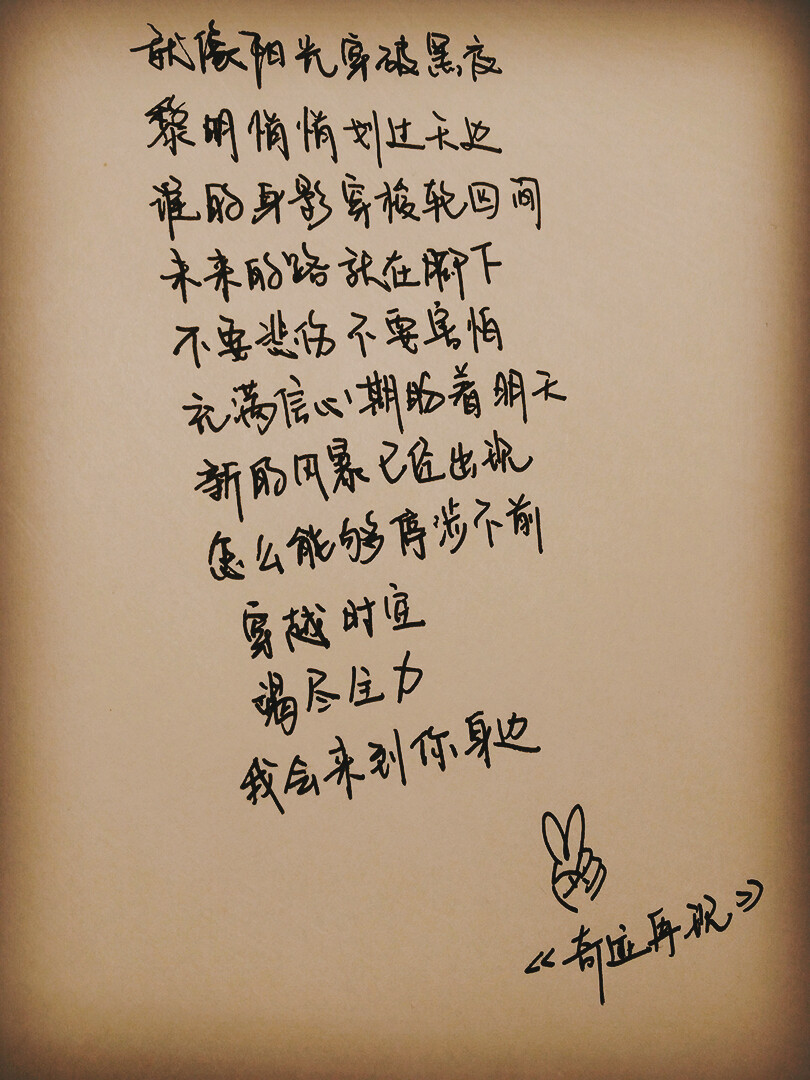 就像阳光穿破黑夜
黎明悄悄划过天边
谁的身影穿梭轮回间
未来的路就在脚下
不要悲伤不要害怕
充满信心期盼着明天
新的风暴已经出现
怎么能够停涉不前
穿越时宜
竭尽全力
我会来到你身边
《奇迹再现》